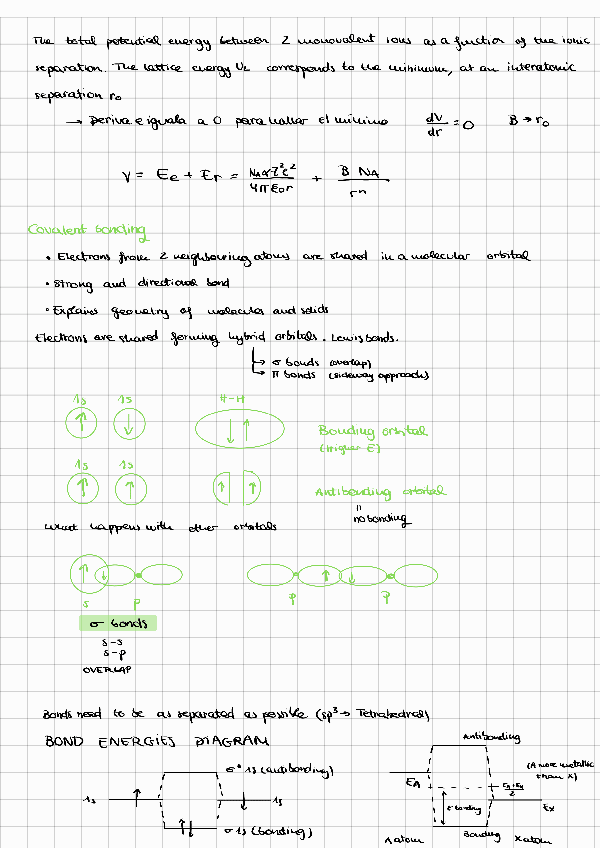 The total potential energy between 2 monovalent ions as a function of the ionic
separation. The lattice energy UL corresponds to the minimum, at an interatomic
separation r₀
→ Deriva e iguala a 0 para hallar el mínimo dV/dr = 0 B → r₀
V = Ee + Er = NAαZ²e²/4πε₀r + B NA/rⁿ
Covalent bonding
• Electrons from 2 neighbouring atoms are shared in a molecular orbital
• Strong and directional bond
• Explains geometry of molecules and solids
Electrons are shared forming hybrid orbitals. Lewis bonds.
↳ σ bonds (overlap)
↳ π bonds (sideway approach)
1s 1s H-H
Bonding orbital
(higher E)
1s 1s
Antibonding orbital
=
no bonding
What happens with other orbitals
s p p p
σ bonds
s-s
s-p
OVERLAP
Bonds need to be as separated as possible (sp³ → Tetrahedral)
BOND ENERGIES DIAGRAM
σ* 1s (antibonding)
1s 1s
σ 1s (bonding)
Antibonding
(A more metallic
than X)
EA
EA+EX/2
E bonding
EX
A atom Bonding X atom